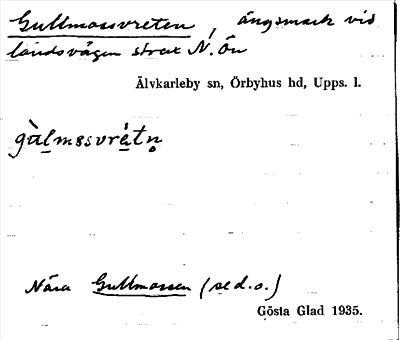 Gullmossvreten, ängsmark vid
landsvägen strax N. Ön
Älvkarleby sn, Örbyhus hd, Upps. l.
gùlmosvrétn̥
Nära Gullmossen (se d. o.)
Gösta Glad 1935.